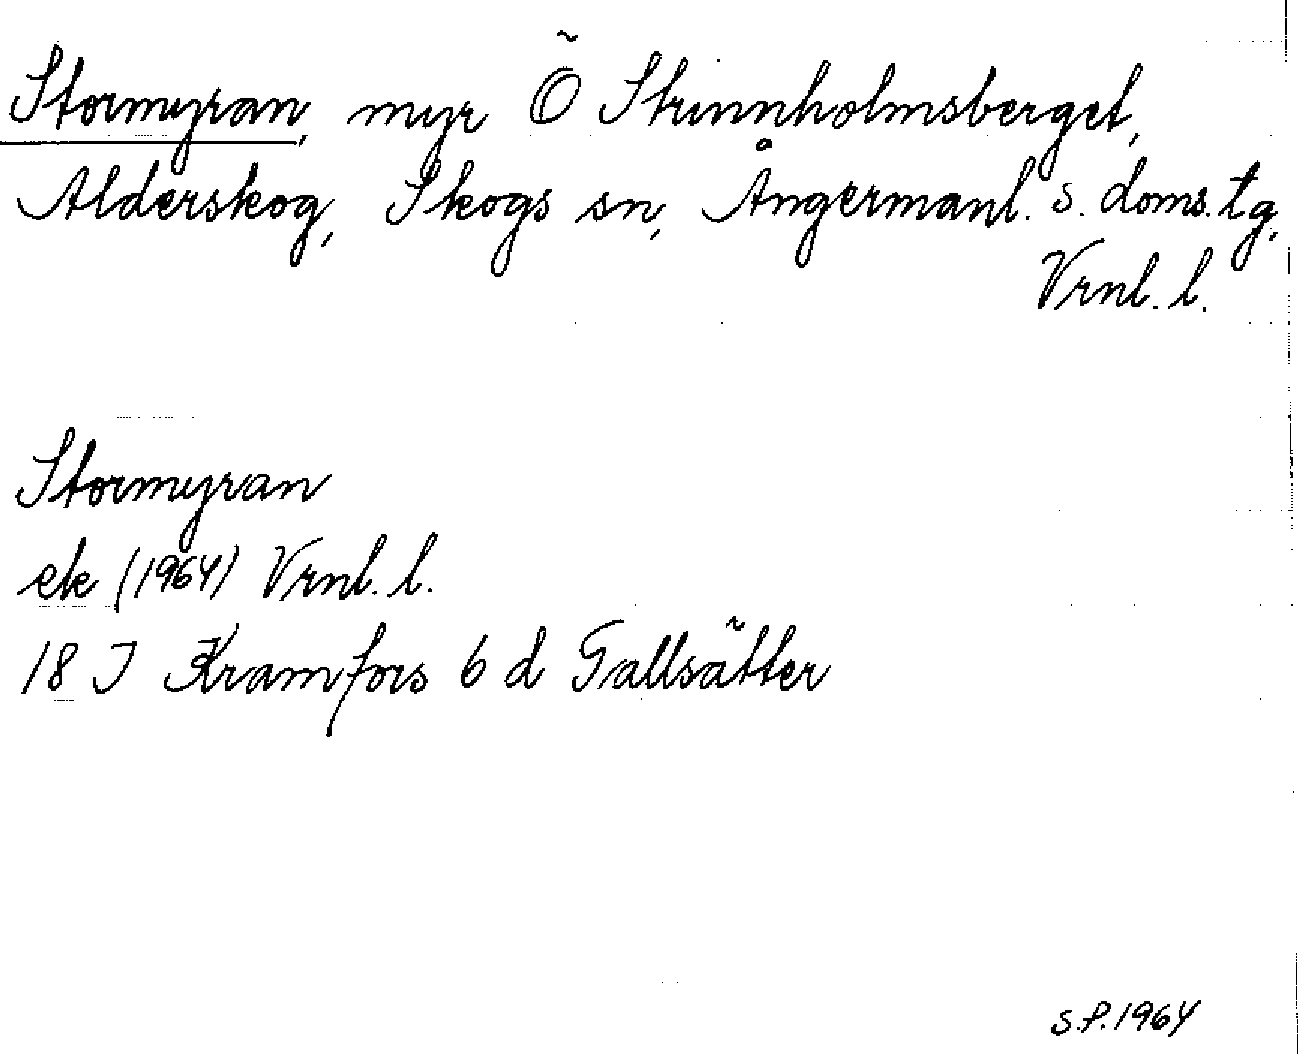 Stormyran, myr Ö Strinnholmsberget,
Alderskog, Skogs sn, Ångermanl. s. doms. tg,
Vrnl. l.
Stormyran
ek (1964) Vrnl. l.
18 I Kramfors 6 d Gallsätter
S.P. 1964